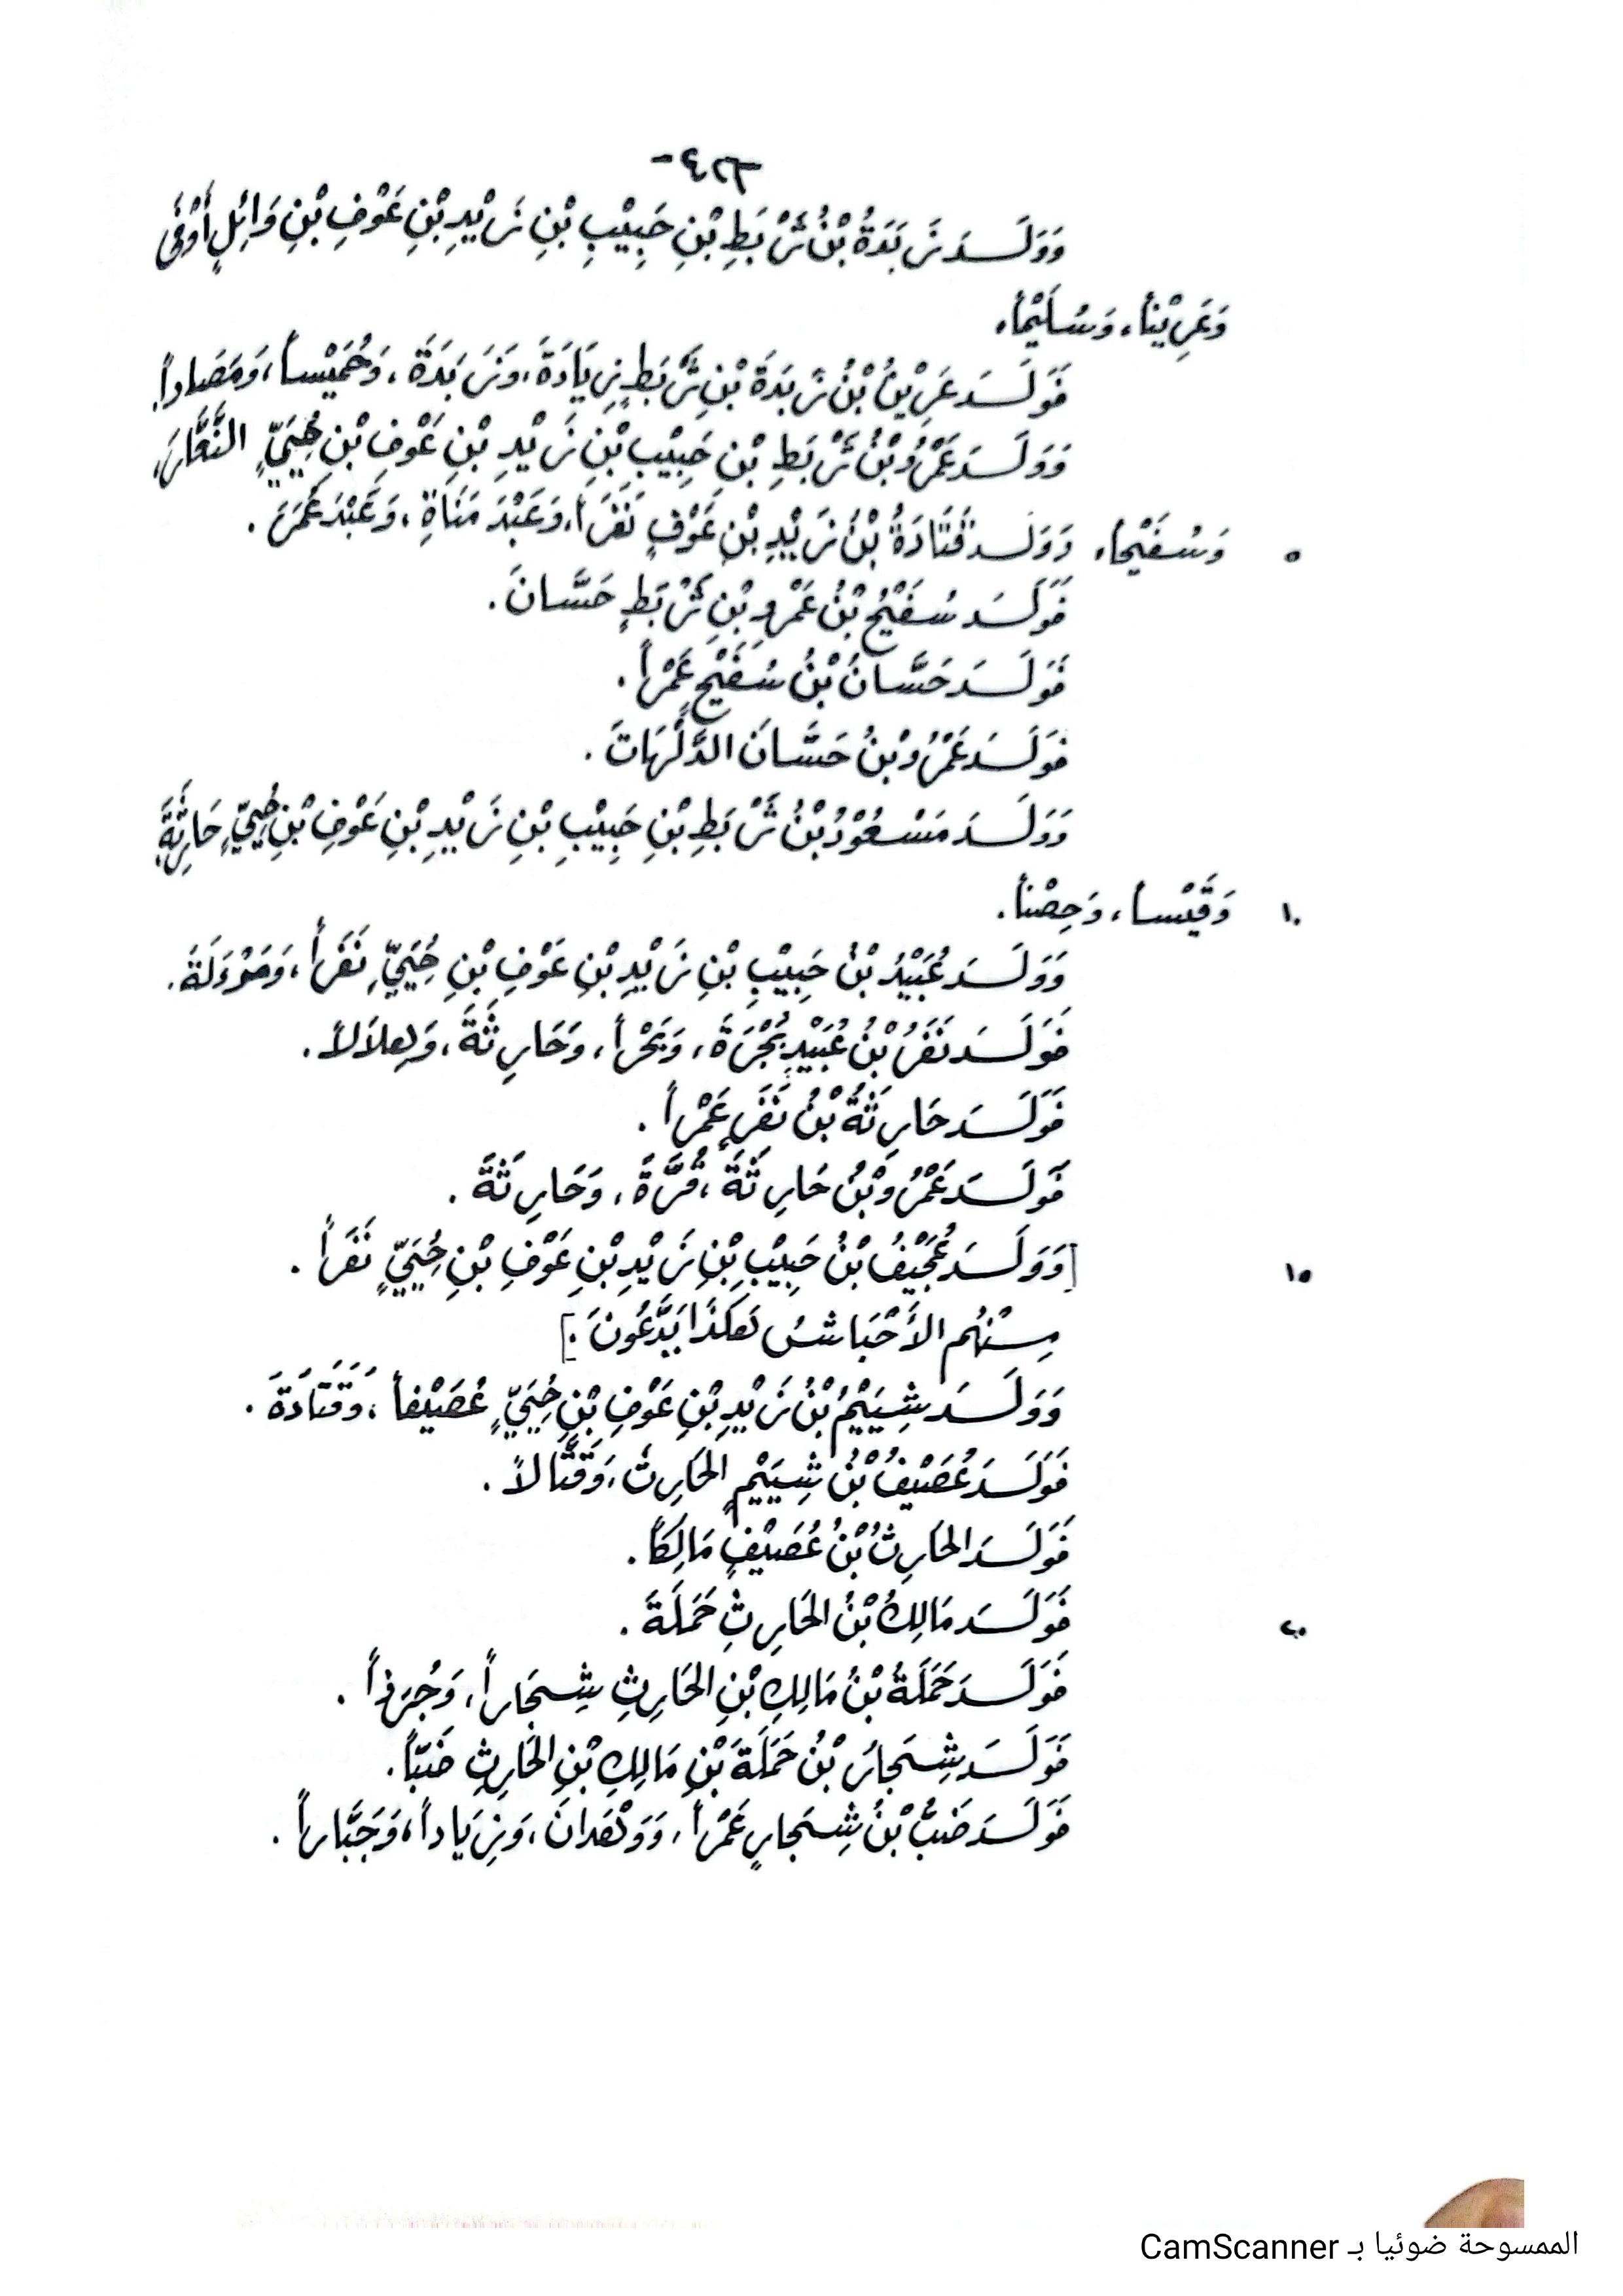 -٤٢٣-
وَوَلَسدَ زَبَدَةُ بْنُ ثَرْبَطِ بْنِ حَبِيْبِ بْنِ زَيْدِ بْنِ عَوْفِ بْنِ وَائِلٍ أَوْفَى
وَعَرِيْنأ، وَسُلَيْمأ،
فَوَلَسدَ عَرِيْنُ بْنُ زَبَدَةَ بْنِ ثَرْبَطٍ زِيَادَةَ، وَزَبَدَةَ، وَخُمَيْسأ، وَمَصَاداً.
وَوَلَسدَ عَمْرُو بْنُ ثَرْبَطِ بْنِ حَبِيْبِ بْنِ زَيْدِ بْنِ عَوْفِ بْنِ حُيَيٍّ النَّعَّارَ،
٥ وَسُفَيْحأ، وَوَلَسدَ قَتَادَةُ بْنُ زَيْدِ بْنِ عَوْفٍ نَفَراً، وَعَبْدَ مَنَاةِ، وَعَبْدَ عُمَرَ.
فَوَلَسدَ سُفَيْحُ بْنُ عَمْرِو بْنِ ثَرْبَطٍ حَسَّانَ.
فَوَلَسدَ حَسَّانُ بْنُ سُفَيْحٍ عَمْراً.
فَوَلَسدَ عَمْرُو بْنُ حَسَّانَ الدَّلْهَاثَ.
وَوَلَسدَ مَسْعُوْدُ بْنُ ثَرْبَطِ بْنِ حَبِيْبِ بْنِ زَيْدِ بْنِ عَوْفِ بْنِ حُيَيٍّ حَارِثَةَ،
١٠ وَقَيْسأ، وَحِصْنأ.
وَوَلَسدَ عُبَيْدُ بْنُ حَبِيْبِ بْنِ زَيْدِ بْنِ عَوْفِ بْنِ حُيَيٍّ نَفَراً، وَمَوْءَلَةَ.
فَوَلَسدَ نَفَرُ بْنُ عُبَيْدٍ بُجْرَةَ، وَبَحْراً، وَحَارِثَةَ، وَهِلاَلاً.
فَوَلَسدَ حَارِثَةُ بْنُ نَفَرٍ عَمْراً.
فَوَلَسدَ عَمْرُو بْنُ حَارِثَةَ، قُرَّةَ، وَحَارِثَةَ.
١٥ [وَوَلَسدَ عُجَيْفُ بْنُ حَبِيْبِ بْنِ زَيْدِ بْنِ عَوْفِ بْنِ حُيَيٍّ نَفَراً.
مِنْهُم الأَحْبَاشُ هَكَذَا يَدَّعُونَ.]
وَوَلَسدَ شِيَيْمُ بْنُ زَيْدِ بْنِ عَوْفِ بْنِ حُيَيٍّ عُصَيْفأ، وَقَتَادَةَ.
فَوَلَسدَ عُصَيْفُ بْنُ شِيَيْمٍ الحَارِثَ، وَقَتَّالاً.
فَوَلَسدَ الحَارِثُ بْنُ عُصَيْفٍ مَالِكأً.
٢٠ فَوَلَسدَ مَالِكُ بْنُ الحَارِثِ حَمَلَةَ.
فَوَلَسدَ حَمَلَةُ بْنُ مَالِكِ بْنِ الحَارِثِ شِجَاراً، وَجُرَذاً.
فَوَلَسدَ شِجَارُ بْنُ حَمَلَةَ بْنِ مَالِكِ بْنِ الحَارِثِ ضَبّاً.
فَوَلَسدَ ضَبُّ بْنُ شِجَارٍ عَمْراً، وَوَهْدَانَ، وَزِيَاداً، وَجَبَّاراً.
الممسوحة ضوئيا بـ CamScanner